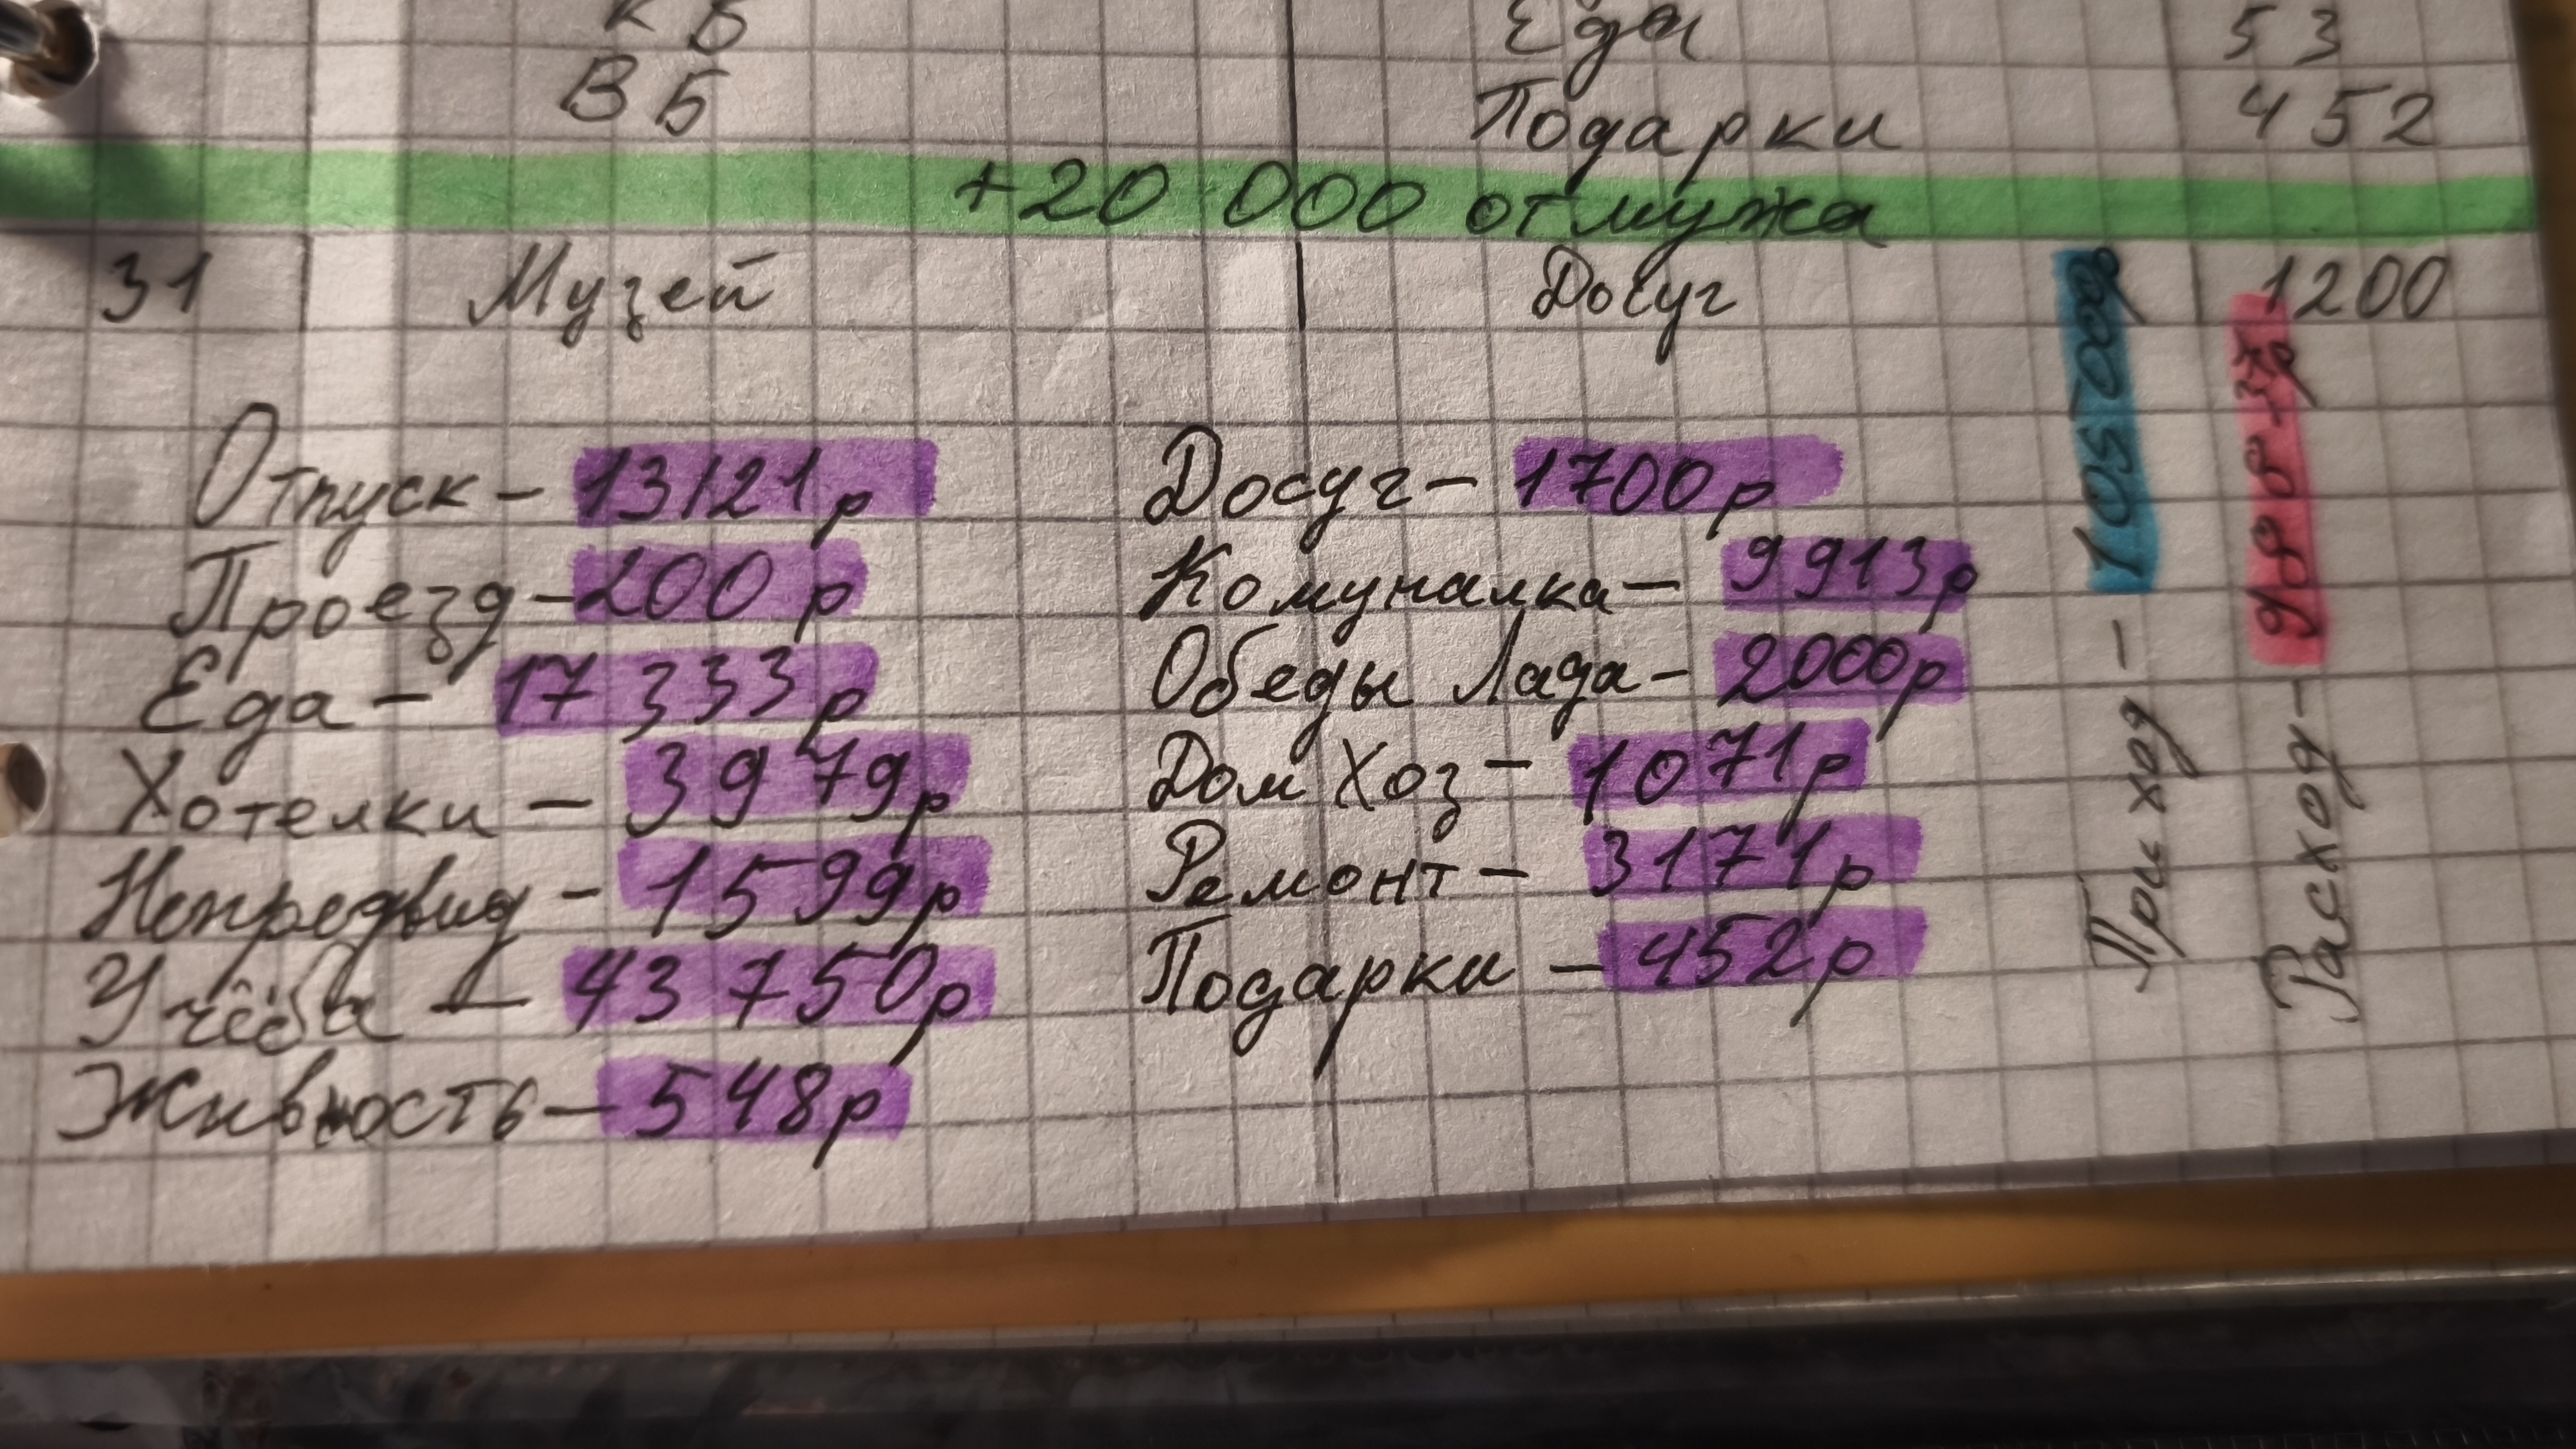 КБ Еда 53
ВБ Подарки 452
+20 000 от мужа
31 Музей Досуг 1200
Отпуск - 13121р
Проезд - 200 р
Еда - 17 333р
Хотелки - 3979р
Непредвид - 1599р
Учёба - 43 750р
Живность - 548р
Досуг - 1700р
Комуналка - 9913р
Обеды Лада - 2000р
Дом Хоз - 1071р
Ремонт - 3171р
Подарки - 452р
Приход - 105700р
Расход - 98837р